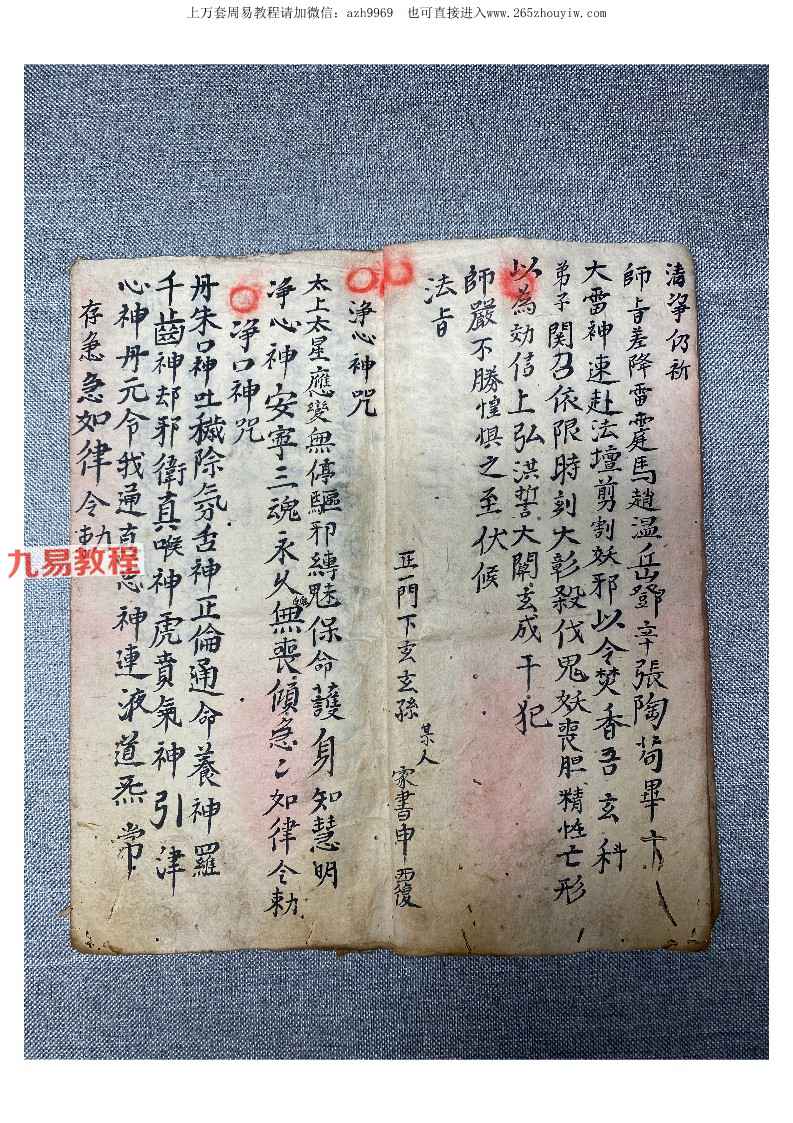 上万套周易教程请加微信：azh9969　也可直接进入www.265zhouyiw.com
清爭仍祈
師旨差降雷霆馬趙温岳鄧辛張陶苟畢
大雷神速赴法壇剪割妖邪以令焚香吾玄科
弟子関召依限時刻大彰殺伐鬼妖喪胆精性亡形
以為効信上弘洪誓大闡玄成干犯
師嚴不勝惶惧之至伏候
法旨
正一門下玄玄孫某人家書申西復
淨心神咒
太上太星應變無停驅邪縛魅保命護身知慧明
淨心神安寕三魂永久無喪傾急〻如律令勅
净口神咒
丹朱口神吐穢除氛舌神正倫通命養神羅
千齒神却邪衛真喉神虎賁氣神引津
心神丹元令我通真思神連液道炁常
存急急如律令勅
九易教程